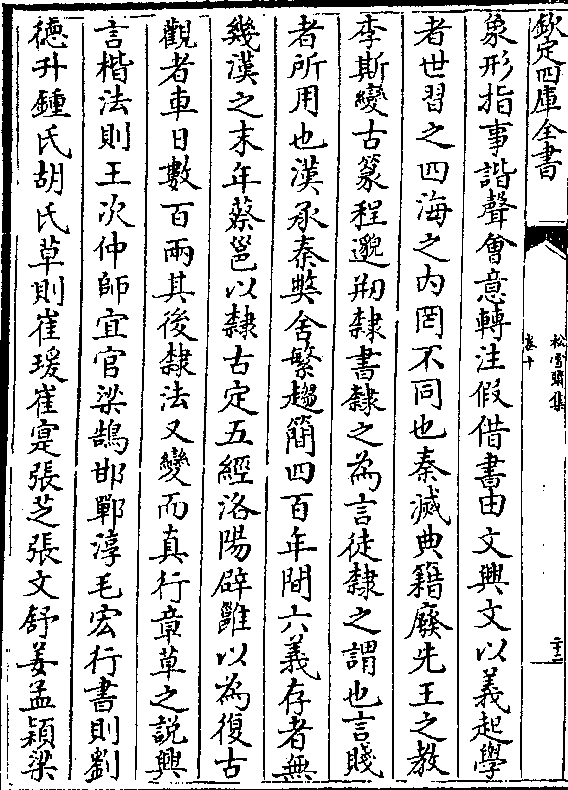 欽定四庫全書
松雪齋集
卷十
象形指事諧聲會意轉注假借書由文興文以義起學
者世習之四海之内罔不同也秦滅典籍廢先王之教
李斯變古篆程邈刱隸書隸之為言徒隸之謂也言賤
者所用也漢承秦弊舍繁趨簡四百年間六義存者無
幾漢之末年蔡邕以隸古定五經洛陽辟雝以為復古
觀者車日數百兩其後隸法又變而真行章草之説興
言楷法則王次仲師宜官梁鵠邯鄲淳毛宏行書則劉
德升鍾氏胡氏草則崔瑗崔寔張芝張文舒姜孟穎梁